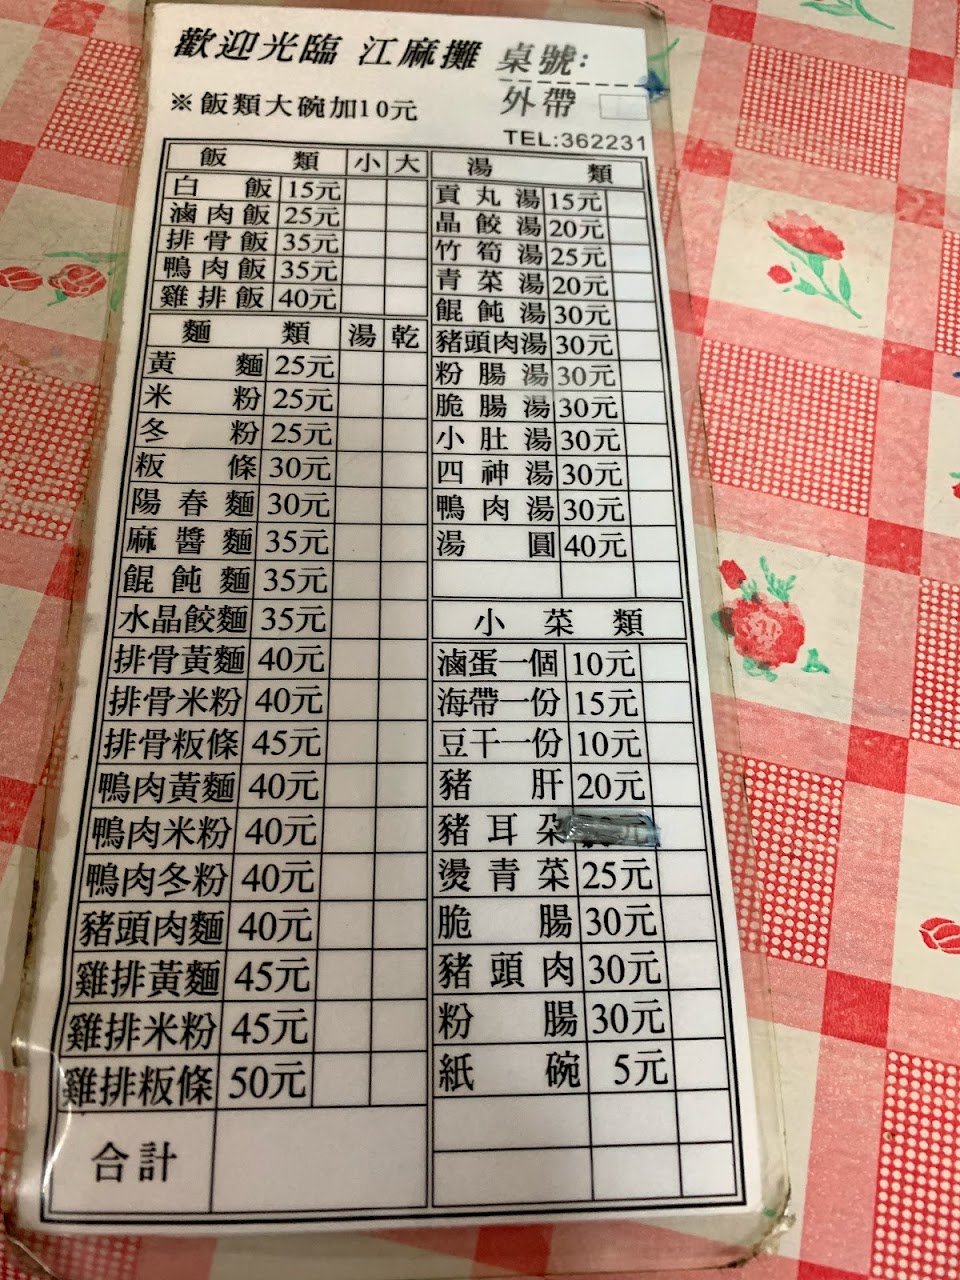 歡迎光臨 江麻攤
桌號:
外帶
※飯類大碗加10元
TEL:362231
飯類 小 大
白飯 15元
滷肉飯 25元
排骨飯 35元
鴨肉飯 35元
雞排飯 40元
麵類 湯 乾
黃麵 25元
米粉 25元
冬粉 25元
粄條 30元
陽春麵 30元
麻醬麵 35元
餛飩麵 35元
水晶餃麵 35元
排骨黃麵 40元
排骨米粉 40元
排骨粄條 45元
鴨肉黃麵 40元
鴨肉米粉 40元
鴨肉冬粉 40元
豬頭肉麵 40元
雞排黃麵 45元
雞排米粉 45元
雞排粄條 50元
合計
湯類
貢丸湯 15元
晶餃湯 20元
竹筍湯 25元
青菜湯 20元
餛飩湯 30元
豬頭肉湯 30元
粉腸湯 30元
脆腸湯 30元
小肚湯 30元
四神湯 30元
鴨肉湯 30元
湯圓 40元
小菜類
滷蛋一個 10元
海帶一份 15元
豆干一份 10元
豬肝 20元
豬耳朵 元
燙青菜 25元
脆腸 30元
豬頭肉 30元
粉腸 30元
紙碗 5元